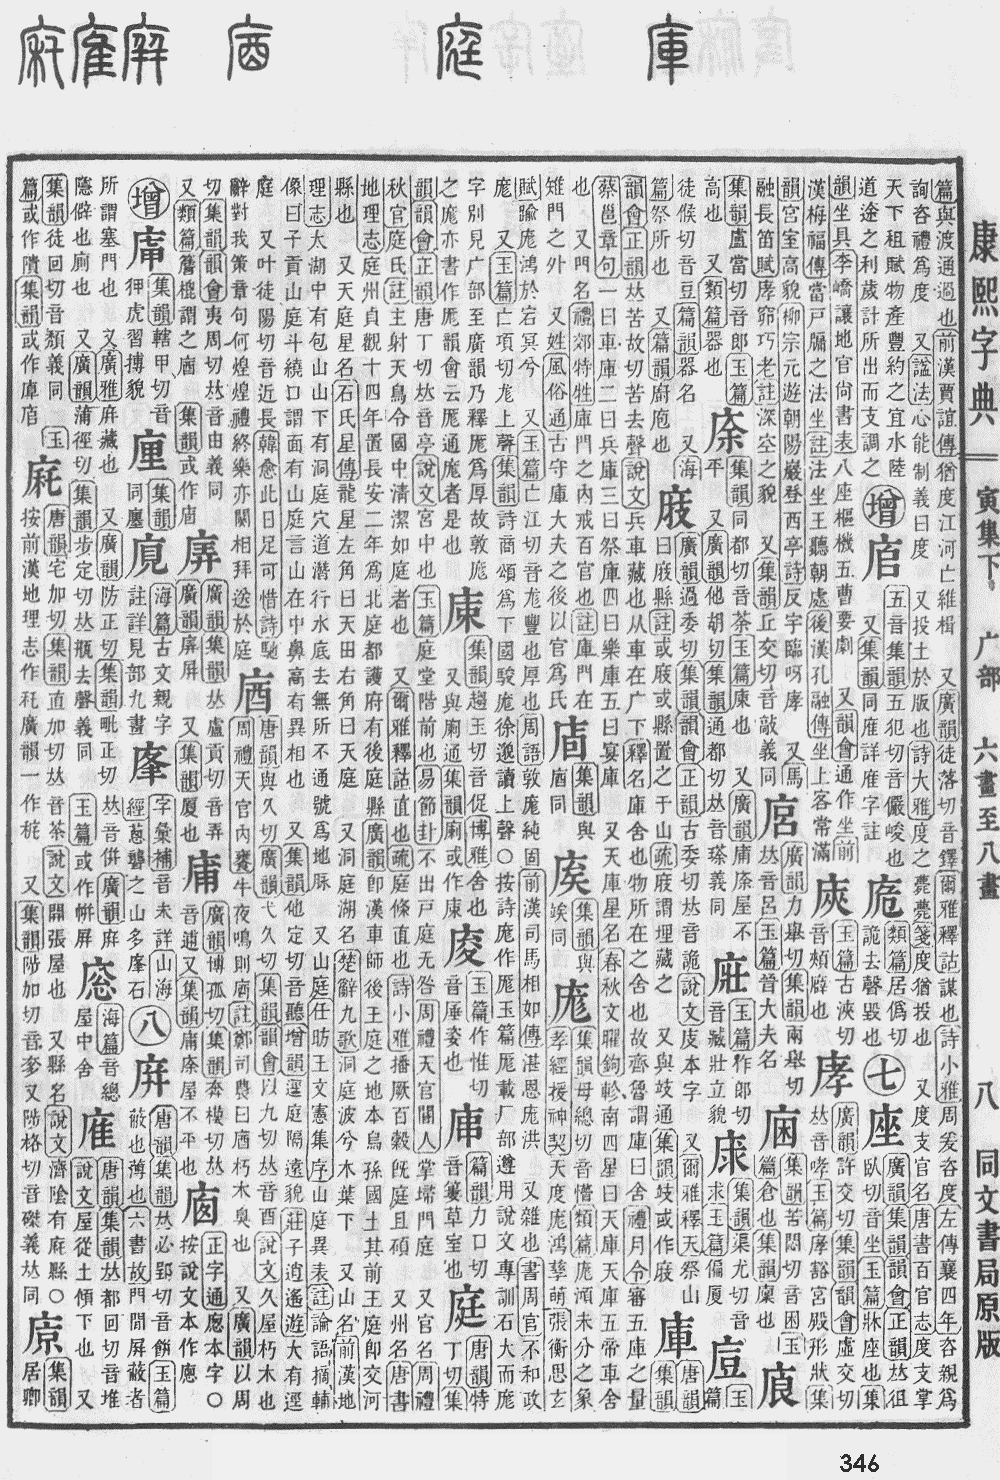 庫 庭 庮
康熙字典 寅集下 广部 六畫至八畫 八 同文書局原版
篇與渡通過也前漢賈誼傳猶度江河亡維楫 又廣韻徒落切音鐸爾雅釋詁謀也詩小雅周爰咨度左傳襄四年咨親爲
詢咨禮爲度 又諡法心能制義曰度 又投土於版也詩大雅度之薨薨箋度猶投也 又度支官名唐書百官志度支掌
天下租賦物產豐約之宜水陸
道途之利歲計所出而支調之
增 五音集韻五犯切音儼峻也
庬 類篇居僞切
詭去聲毀也
七 座 廣韻集韻韻會正韻𠀤徂
臥切音坐玉篇牀座也集
韻坐具李嶠讓地官尚書表八座樞機五曹要劇 又韻會通作坐前
漢梅福傳當戸牖之法坐註法坐正聽朝處後漢孔融傳坐上客常滿
玉篇古狹切
音頰廦也
庨 廣韻許交切集韻韻會虛交切
𠀤音哮玉篇庨豁宮殿形狀集
韻宮室高貌柳宗元遊朝陽巖登西亭詩反宇臨呀庨 又馬
融長笛賦庨窌巧老註深空之貌 又集韻丘交切音敲義同
廣韻力舉切集韻兩舉切
𠀤音呂玉篇晉大夫名
集韻苦悶切音困玉
篇倉也集韻廩也
集韻盧當切音郎玉篇
高也 又類篇器也
庩 集韻同都切音荼玉篇庩也 又廣韻庯庩屋不
平 又廣韻他胡切集韻通都切𠀤音瑹義同
玉篇作郎切
音臧壯立貌
集韻渠尤切音
求玉篇偏廈
徒候切音豆篇韻器名
篇祭所也 又篇韻廚庖也
庪 廣韻過委切集韻韻會正韻古委切𠀤音詭說文庋本字 又爾雅釋天祭山
曰庪縣註或庪或縣置之于山疏庪謂埋藏之 又與攱通集韻攱或作庪
庫 唐韻
集韻
韻會正韻𠀤苦故切苦去聲說文兵車藏也从車在广下釋名庫舍也物所在之舍也故齊魯謂庫曰舍禮月令審五庫之量
蔡邕章句一曰車庫二曰兵庫三曰祭庫四曰樂庫五曰宴庫 又天庫星名春秋文曜鉤軫南四星曰天庫天庫五帝車舍
也 又門名禮郊特牲庫門之內戒百官也註庫門在
雉門之外 又姓風俗通古守庫大夫之後以官爲氏
集韻與
庮同
集韻與
竢同
庬 集韻母總切音懵類篇庬澒未分之象
孝經援神契天度庬鴻孳萌張衡思玄
賦踰庬澒於宕冥兮 又玉篇亡江切音尨豐也厚也周語敦庬純固前漢司馬相如傳湛恩庬洪 又雜也書周官不和政
庬 又玉篇亡項切尨上聲集韻詩商頌爲下國駿庬徐邈讀上聲○按詩庬作厖玉篇厖載厂部遵用說文專訓石大而庬
字別見广部至廣韻乃釋厖爲厚故敦庬
之庬亦書作厖韻會云厖通庬者是也
集韻趨玉切音促博雅舍也
又與廟通集韻廟或作庩
玉篇作惟切
音厜姿也
篇韻力口切
音簍草室也
庭 唐韻特
丁切集
韻韻會正韻唐丁切𠀤音亭說文宮中也玉篇庭堂階前也易節卦不出戸庭无咎周禮天官閽人掌埽門庭 又官名周禮
秋官庭氏註主射天鳥令國中淸潔如庭者也 又爾雅釋詁直也疏庭條直也詩小雅播厥百穀旣庭且碩 又州名唐書
地理志庭州貞觀十四年置長安二年爲北庭都護府有後庭縣廣韻卽漢車師後王庭之地本烏孫國土其前王庭卽交河
縣也 又天庭星名石氏星傳龍星左角曰天田右角曰天庭 又洞庭湖名楚辭九歌洞庭波兮木葉下 又山名前漢地
理志太湖中有包山山下有洞庭穴道潛行水底去無所不通號爲地脈 又山庭任昉王文憲集序山庭異表註論語摘輔
像曰子貢山庭斗繞口謂面有山庭言山在中鼻高有異相也 又集韻他定切音聽增韻逕庭隔遠貌莊子逍遙遊大有逕
庭 又叶徒陽切音近長韓愈此日足可惜詩馳
辭對我策章句何煒煌禮終樂亦闋相拜送於庭
庮 唐韻與久切廣韻弋久切集韻韻會以九切𠀤音酉說文久屋朽木也
周禮天官內饔牛夜鳴則庮註鄭司農曰庮朽木臭也 又廣韻以周
切集韻韻會夷周切𠀤音由義同 集韻或作庮
又類篇簷梍謂之庮
廣韻集韻𠀤盧貢切音弄
廣韻庴屏 又集韻廈也
庯 廣韻博孤切集韻奔模切𠀤
音逋又集韻庯庩屋不平也
正字通廒本字○
按說文本作
增 集韻轄甲切音
狎虎習搏貌
集韻
同廛
海篇古文親字
註詳見部九畫
字彙補音未詳山海
經葱聾之山多庨石
八 庰 唐韻集韻𠀤必郢切音餅玉篇
蔽也薄也六書故門閒屏蔽者
所謂塞門也 又廣雅庰藏也 又廣韻防正切集韻毗正切𠀤音偋廣韻庰
隱僻也廁也 又廣韻蒲徑切集韻步定切𠀤甁去聲義同 玉篇或作帡屏
海篇音總
屋中舍
唐韻集韻𠀤都回切音堆
說文屋從上傾下也 又
集韻徒回切音頹義同 玉
篇或作隤集韻或作㢈
庛 唐韻宅加切集韻直加切𠀤音荼說文開張屋也 又縣名說文濟陰有庛縣○
按前漢地理志作秅廣韻一作秅 又集韻陟加切音奓又陟格切音磔義𠀤同
集韻
居卿
346